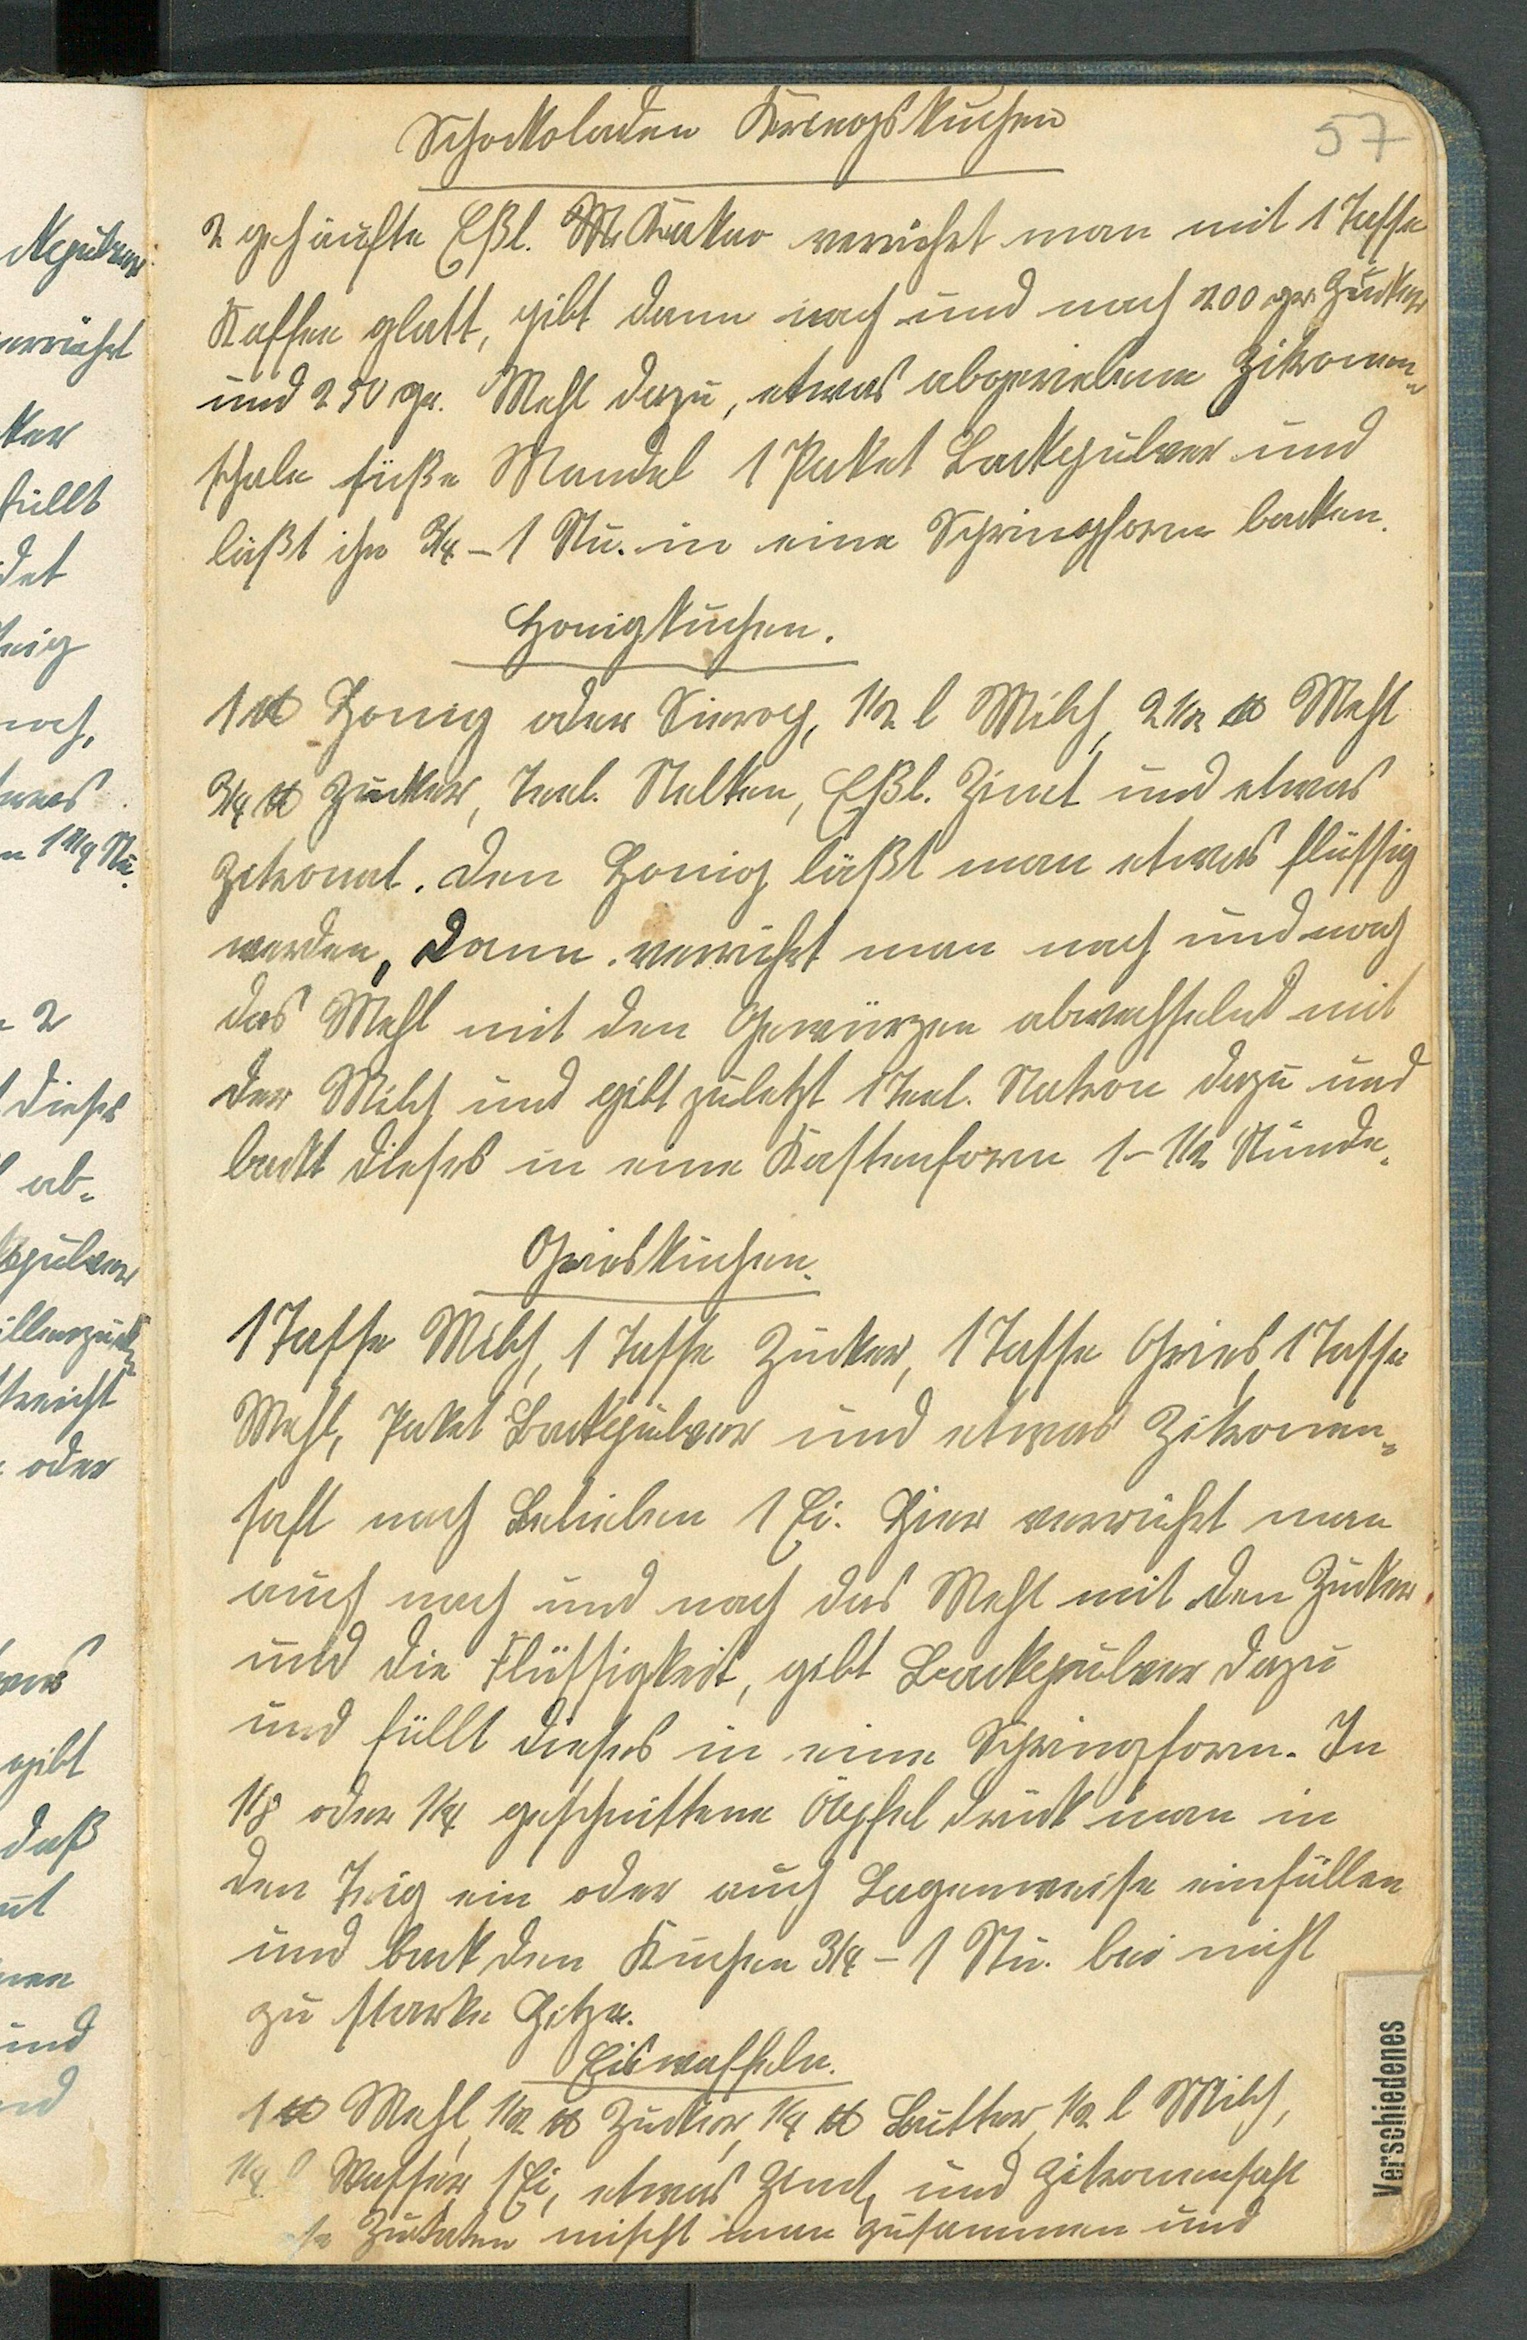 Schokoladen Kriegskuchen
57
2 gehäufte Eßl. Kakao verrührt man mit 1 Tasse
Kaffee glatt, gibt dann nach und nach 200 gr. Zucker
und 250 gr. Mehl dazu, etwas abgeriebene Zitronen-
schale süße Mandel 1 Paket Backpulver und
läßt ihn 3/4 - 1 Stu. in eine Springform backen.
Honigkuchen.
1 ℔ Honig oder Sirop, 1/2 l Milch, 2 1/2 ℔ Mehl
3/4 ℔ Zucker, Teel. Nelken, Eßl. Zimt und etwas
Zitronat. Den Honig läßt man etwas flüssig
werden, dann verrührt man nach und nach
das Mehl mit den Gewürzen abwechselnd mit
der Milch und gibt zuletzt 1 Teel. Natron dazu und
backt dieses in eine Kastenform 1 - 1/2 Stunde.
Grieskuchen.
1 Tasse Milch, 1 Tasse Zucker, 1 Tasse Gries, 1 Tasse
Mehl, Paket Backpulver und etwas Zitronen-
saft nach Belieben 1 Ei. Hier verrührt man
auch nach und nach das Mehl mit den Zucker
und die Flüssigkeit, gibt Backpulver dazu
und füllt dieses in eine Springform. In
1/8 oder 1/4 geschnittene Äpfel drückt man in
den Teig ein oder auch Lagenweise einfüllen
und back den Kuchen 3/4 - 1 Stu. bei nicht
zu starke Hitze.
Eiswaffeln.
1 ℔ Mehl, 1/2 ℔ Zucker, 1/4 ℔ Butter, 1/2 l Milch,
1/4 l Wasser, 1 Ei, etwas Zimt, und Zitronensaft
Zutaten mischt man zusammen und
Verschiedenes